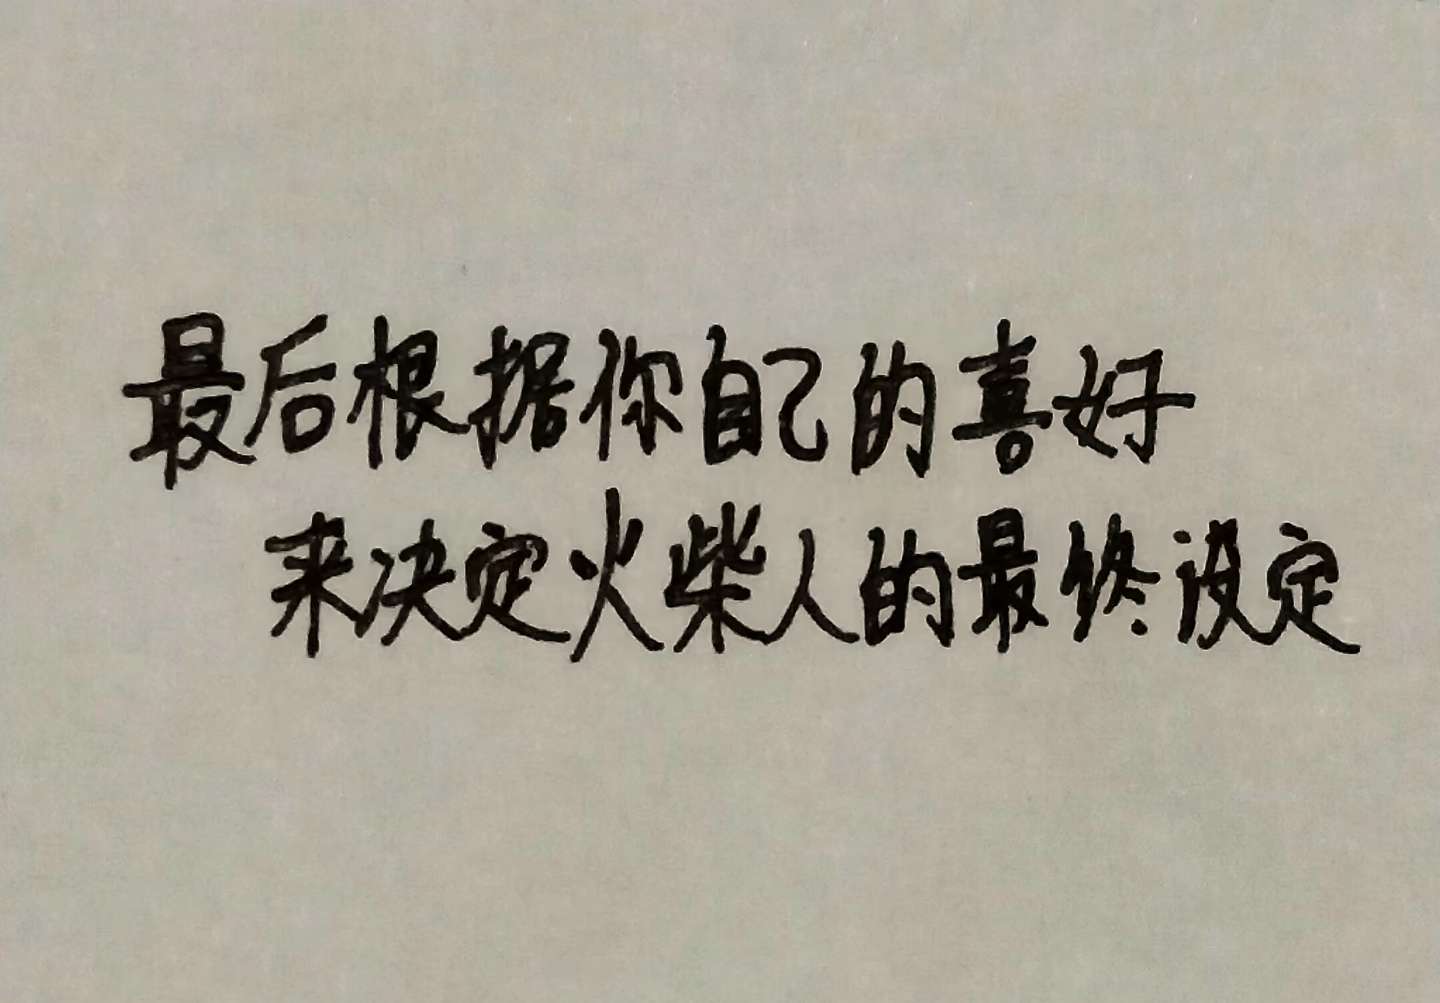 最后根据你自己的喜好
来决定火柴人的最终设定